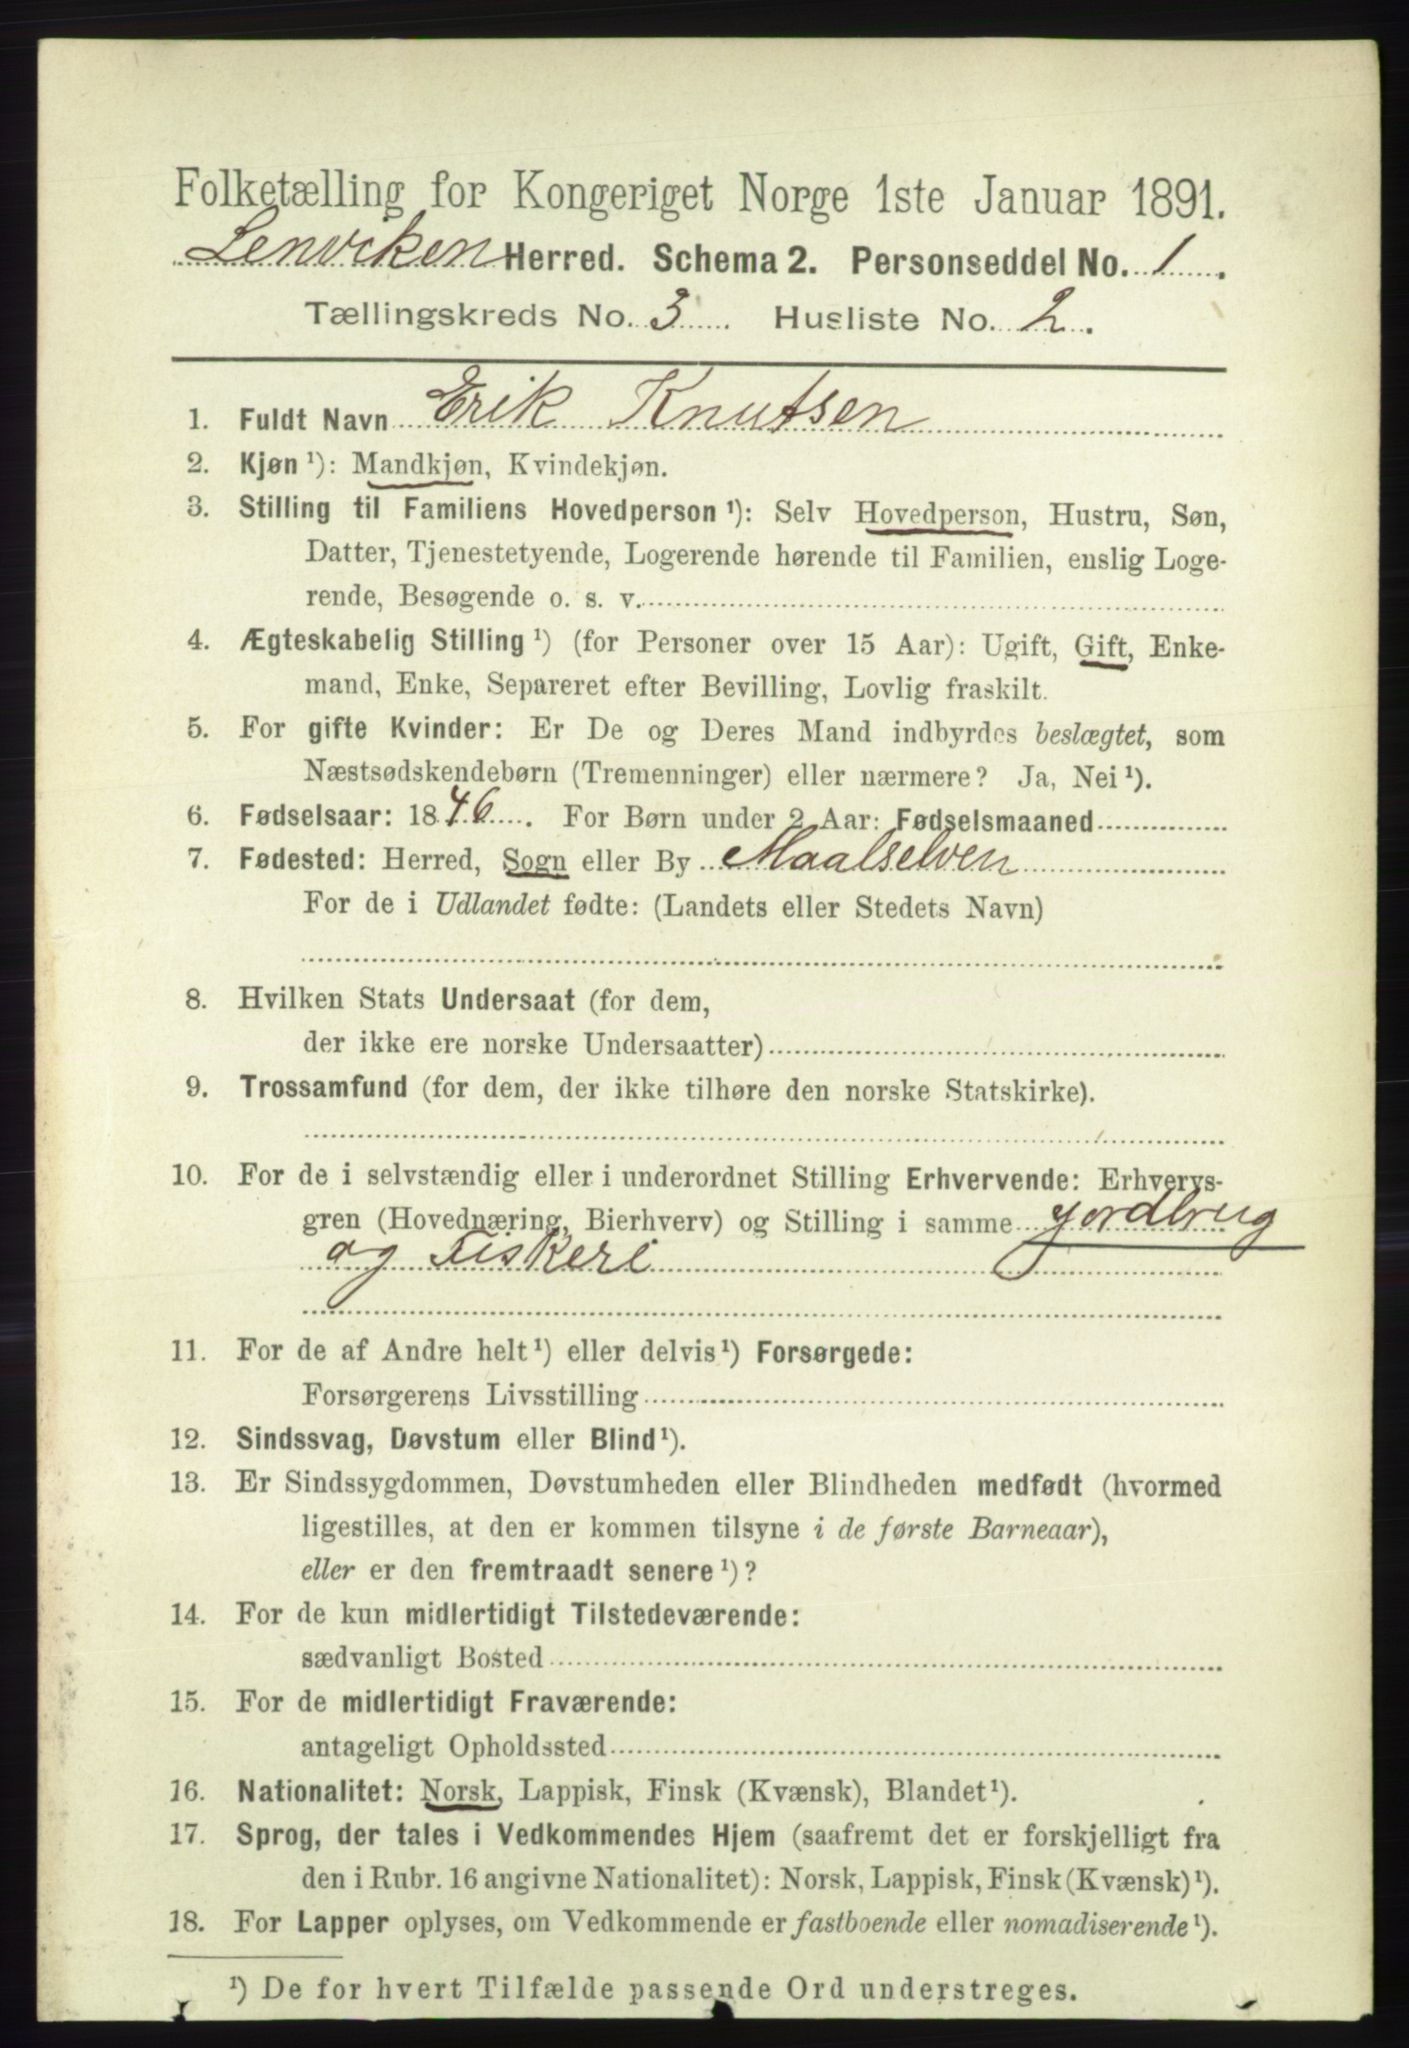 Folketælling for Kongeriget Norge 1ste Januar 1891.
Lenviken Herred. Schema 2. Personseddel No. 1.
Tællingskreds No. 3. Husliste No. 2.
1. Fuldt Navn Erik Knutsen
2. Kjøn ¹): Mandkjøn, Kvindekjøn.
3. Stilling til Familiens Hovedperson ¹): Selv Hovedperson, Hustru, Søn,
Datter, Tjenestetyende, Logerende hørende til Familien, enslig Loge-
rende, Besøgende o. s. v.
4. Ægteskabelig Stilling ¹) (for Personer over 15 Aar): Ugift, Gift, Enke-
mand, Enke, Separeret efter Bevilling, Lovlig fraskilt.
5. For gifte Kvinder: Er De og Deres Mand indbyrdes beslægtet, som
Næstsødskendebørn (Tremenninger) eller nærmere? Ja, Nei ¹).
6. Fødselsaar: 1846. For Børn under 2 Aar: Fødselsmaaned
7. Fødested: Herred, Sogn eller By Maalselven
For de i Udlandet fødte: (Landets eller Stedets Navn)
8. Hvilken Stats Undersaat (for dem,
der ikke ere norske Undersaatter)
9. Trossamfund (for dem, der ikke tilhøre den norske Statskirke).
10. For de i selvstændig eller i underordnet Stilling Erhvervende: Erhvervs-
gren (Hovednæring, Bierhverv) og Stilling i samme Jordbrug
og Fiskeri
11. For de af Andre helt ¹) eller delvis ¹) Forsørgede:
Forsørgerens Livsstilling
12. Sindssvag, Døvstum eller Blind ¹).
13. Er Sindssygdommen, Døvstumheden eller Blindheden medfødt (hvormed
ligestilles, at den er kommen tilsyne i de første Barneaar),
eller er den fremtraadt senere ¹)?
14. For de kun midlertidigt Tilstedeværende:
sædvanligt Bosted
15. For de midlertidigt Fraværende:
antageligt Opholdssted
16. Nationalitet: Norsk, Lappisk, Finsk (Kvænsk), Blandet ¹).
17. Sprog, der tales i Vedkommendes Hjem (saafremt det er forskjelligt fra
den i Rubr. 16 angivne Nationalitet): Norsk, Lappisk, Finsk (Kvænsk) ¹).
18. For Lapper oplyses, om Vedkommende er fastboende eller nomadiserende ¹).
¹) De for hvert Tilfælde passende Ord understreges.